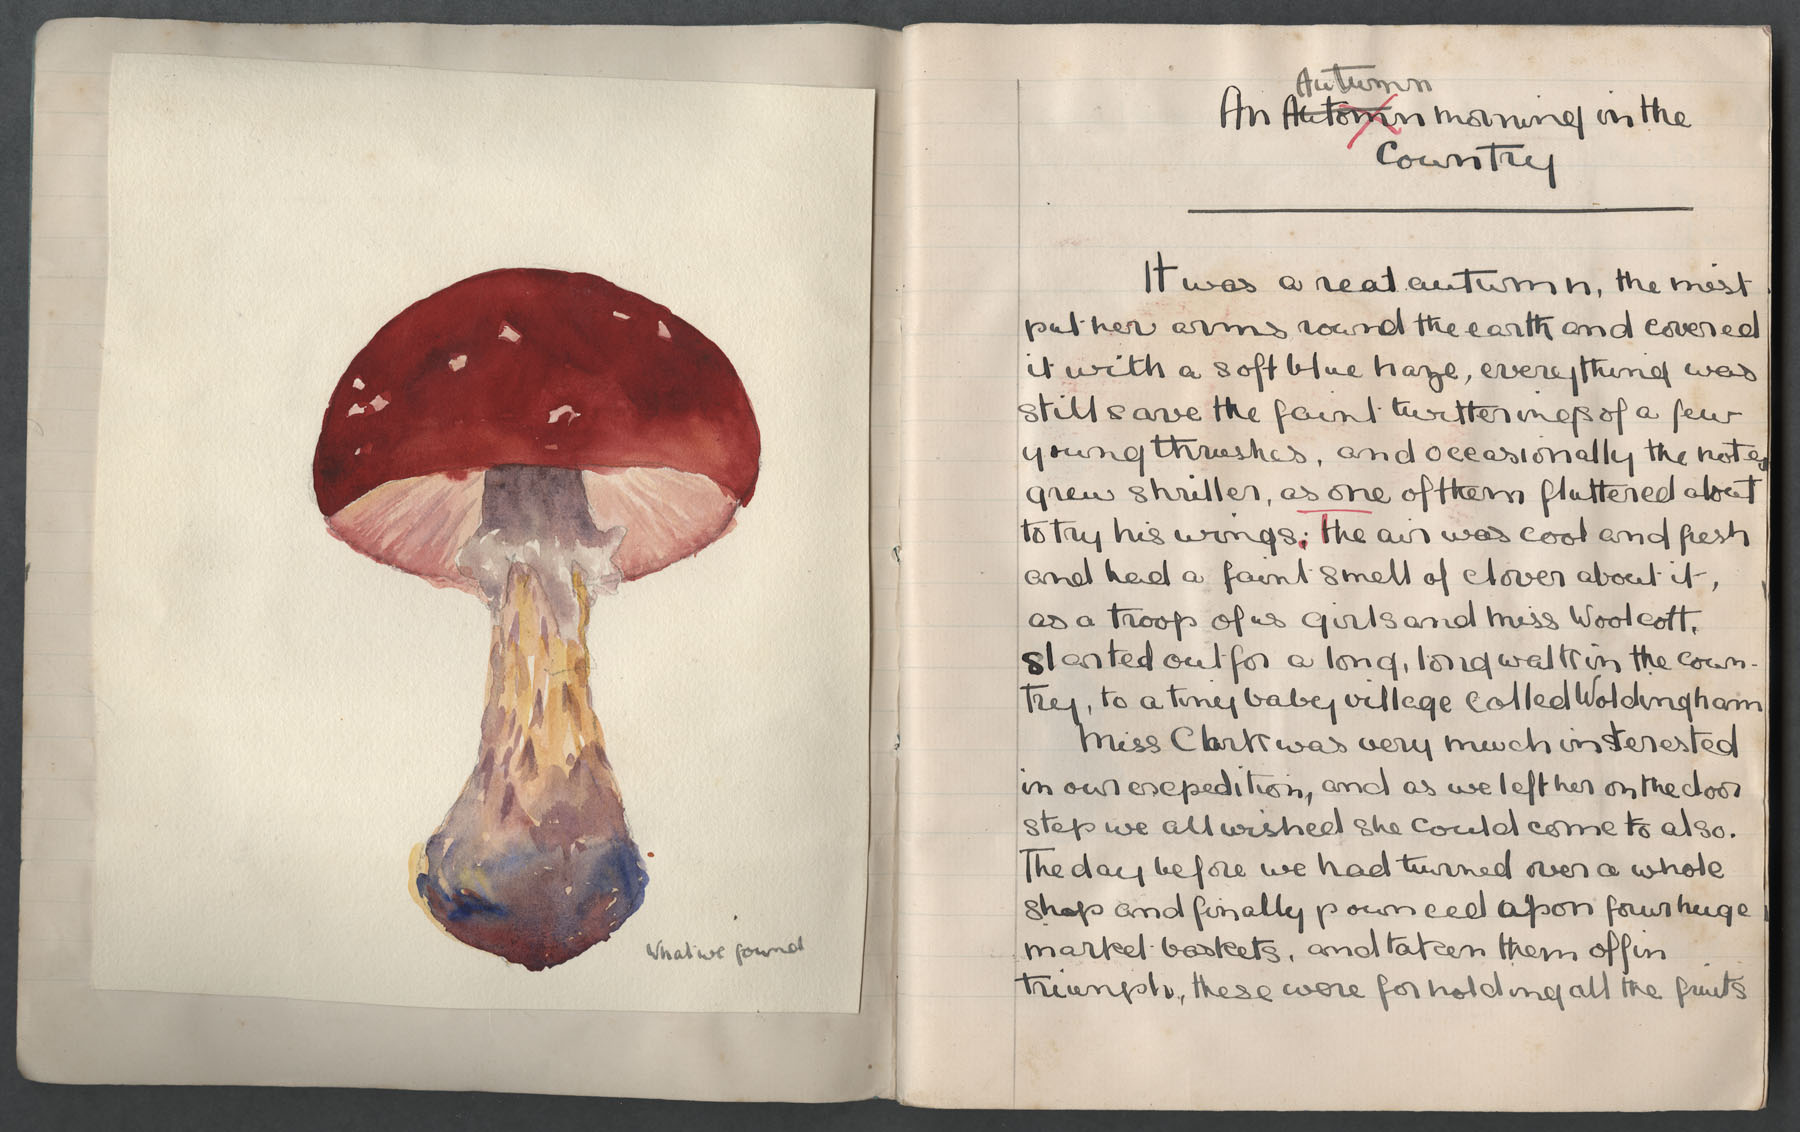 What we found
Autumn
An Automn morning in the
Country
It was a real autumn, the mist
put her arms round the earth and covered
it with a soft blue haze, everything was
still save the faint twitterings of a few
young thrushes, and occasionally the notes
grew shriller, as one of them fluttered about
to try his wings; the air was cool and fresh
and had a faint smell of clover about it,
as a troop of us girls and Miss Woolcott,
started out for a long, long walk in the coun-
try, to a tiny baby village called Woldingham
Miss Clark was very much interested
in our expedition, and as we left her on the door
step we all wished she could come to also.
The day before we had turned over a whole
shop and finally pounced apon four huge
market baskets, and taken them off in
triumph, these were for holding all the fruits